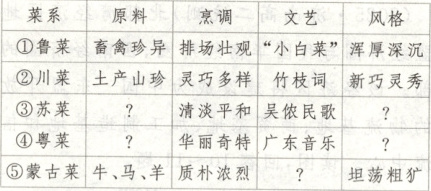 菜系 原料 烹调 文艺 风格
①鲁菜 畜禽珍异 排场壮观 “小白菜” 浑厚深沉
②川菜 土产山珍 灵巧多样 竹枝词 新巧灵秀
③苏菜 ? 清淡平和 吴侬民歌 ?
④粤菜 ? 华丽奇特 广东音乐 ?
⑤蒙古菜 牛、马、羊 质朴浓烈 ? 坦荡粗犷